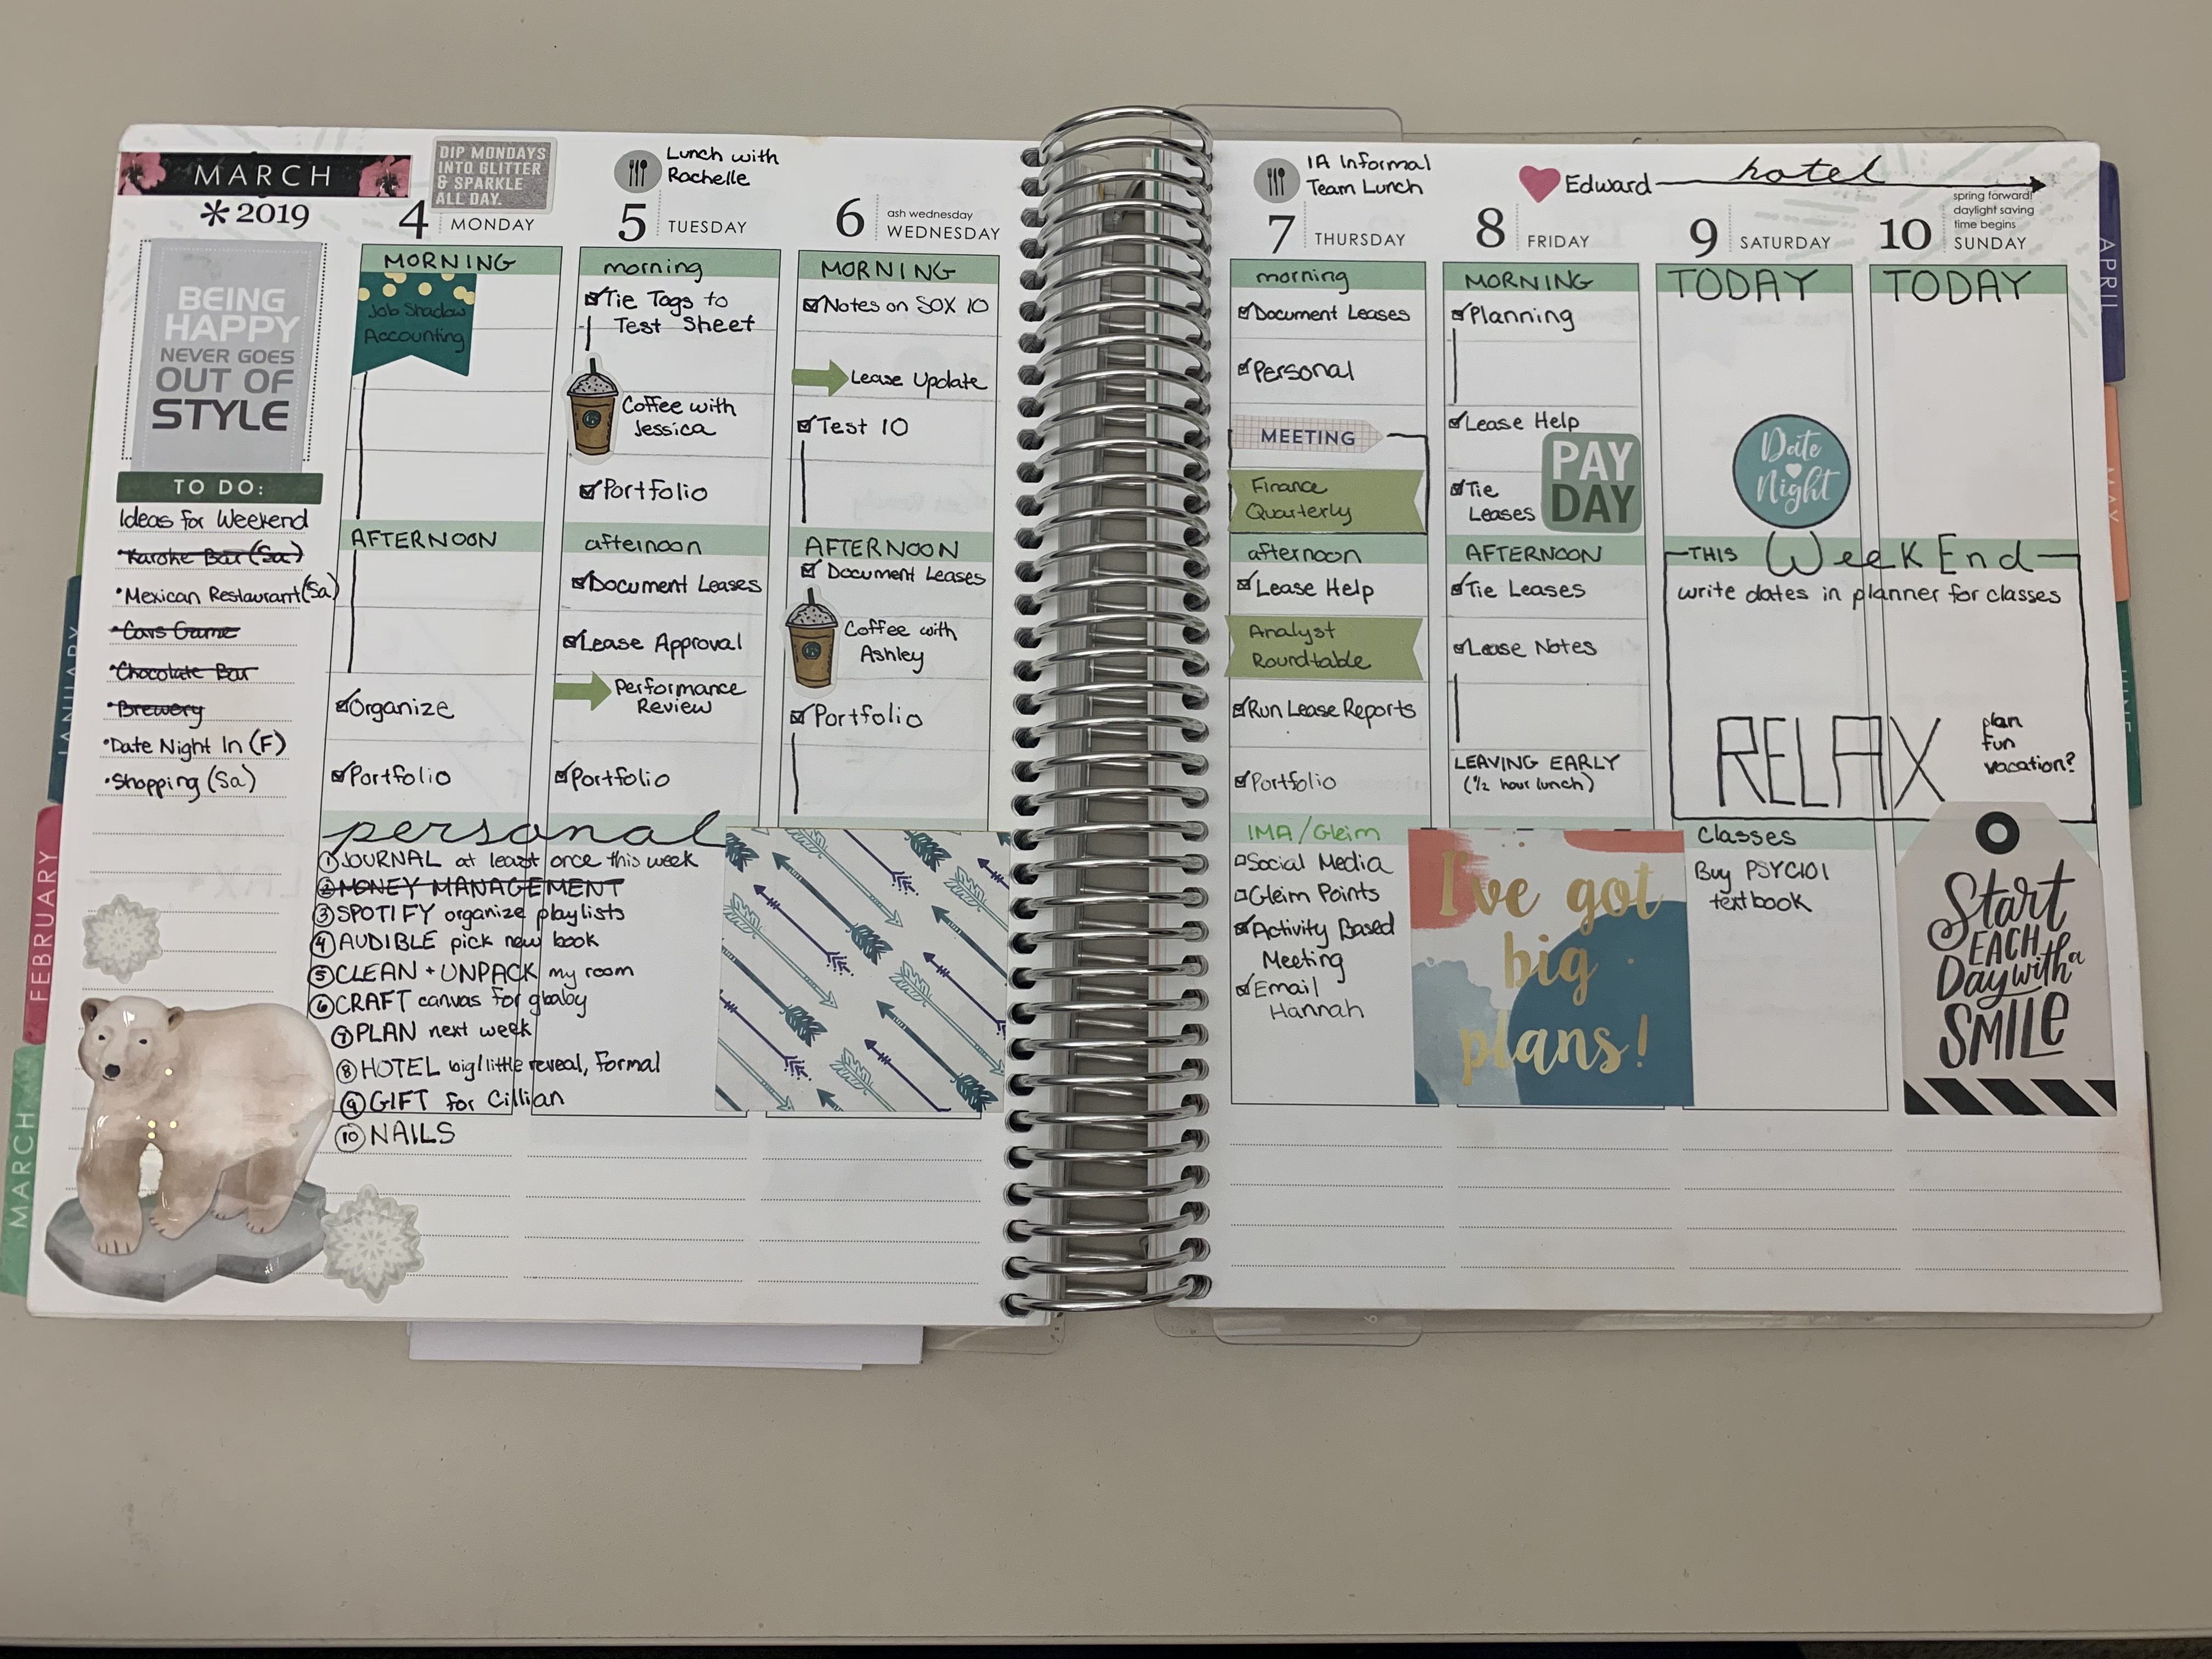 MARCH
* 2019
DIP MONDAYS
INTO GLITTER
& SPARKLE
ALL DAY.
4 MONDAY
Lunch with
Rachelle
5 TUESDAY
6 ash wednesday
WEDNESDAY
BEING
HAPPY
NEVER GOES
OUT OF
STYLE
TO DO:
Ideas for Weekend
•Karoke Bar (Sa)
•Mexican Restaurant (Sa)
•Cavs Game
•Chocolate Bar
•Brewery
•Date Night In (F)
•Shopping (Sa)
MORNING
Job Shadow
Accounting
AFTERNOON
Organize
Portfolio
morning
Tie Tags to
Test Sheet
Coffee with
Jessica
Portfolio
afternoon
Document Leases
Lease Approval
Performance
Review
Portfolio
MORNING
Notes on SOX 10
Lease Update
Test 10
AFTERNOON
Document Leases
Coffee with
Ashley
Portfolio
personal
① JOURNAL at least once this week
② MONEY MANAGEMENT
③ SPOTIFY organize playlists
④ AUDIBLE pick new book
⑤ CLEAN + UNPACK my room
⑥ CRAFT canvas for gbaby
⑦ PLAN next week
⑧ HOTEL big/little reveal, Formal
⑨ GIFT for Cillian
⑩ NAILS
IA Informal
Team Lunch
7 THURSDAY
Edward hotel
8 FRIDAY
9 SATURDAY
spring forward!
daylight saving
time begins
10 SUNDAY
morning
Document Leases
Personal
MEETING
Finance
Quarterly
afternoon
Lease Help
Analyst
Roundtable
Run Lease Reports
Portfolio
IMA/Gleim
Social Media
Gleim Points
Activity Based
Meeting
Email
Hannah
MORNING
Planning
Lease Help
Tie
Leases
PAY
DAY
AFTERNOON
Tie Leases
Lease Notes
LEAVING EARLY
(½ hour lunch)
I've got
big
plans!
TODAY
TODAY
Date
Night
THIS WeekEnd
write dates in planner for classes
RELAX
plan
fun
vacation?
Classes
Buy PSYC101
textbook
Start
EACH
Day with a
SMILE
JANUARY
FEBRUARY
MARCH
APRIL
MAY
JUNE